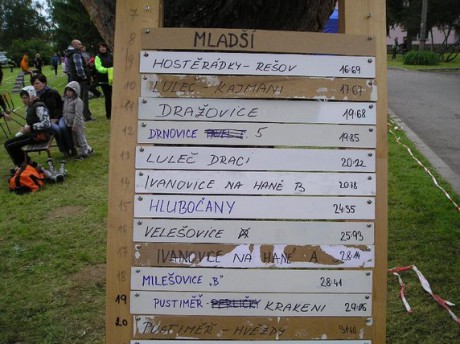 7
8 MLADŠÍ
9 HOSTĚRÁDKY-REŠOV 16:69
10 LULEČ-KAJMANI 17:67
11 DRAŽOVICE 19:68
12 DRNOVICE 5 19:85
13 LULEČ DRACI 20:22
14 IVANOVICE NA HANÉ B 20:78
15 HLUBOČANY 24:95
16 VELEŠOVICE 25:93
17 IVANOVICE NA HANÉ A
18 MILEŠOVICE "B" 28:41
19 PUSTIMĚŘ - PERLIČKY KRAKENI
20 PUSTIMĚŘ - HVĚZDY